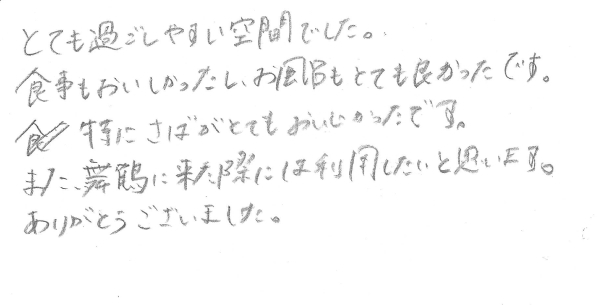 とても過ごしやすい空間でした。
食事もおいしかったし、お風呂もとても良かったです。
特にさばがとてもおいしかったです。
また、舞鶴に来た際には利用したいと思います。
ありがとうございました。